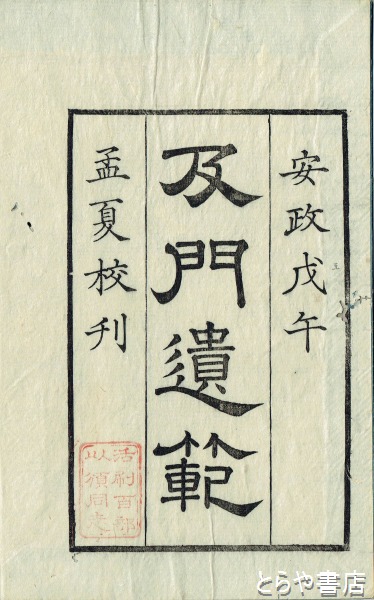 安政戊午
及門遺範
孟夏校刊
活刷百部
以頒同志
とらや書店